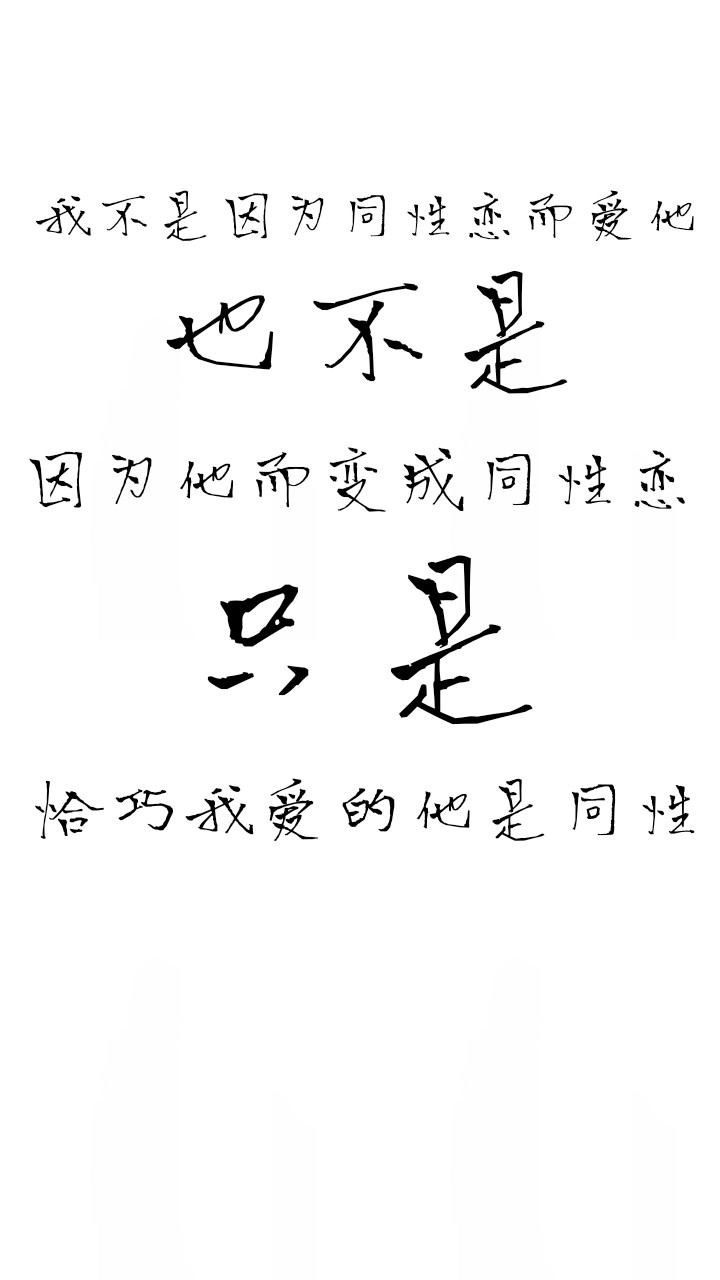 我不是因为同性恋而爱他
也不是
因为他而变成同性恋
只是
恰巧我爱的他是同性